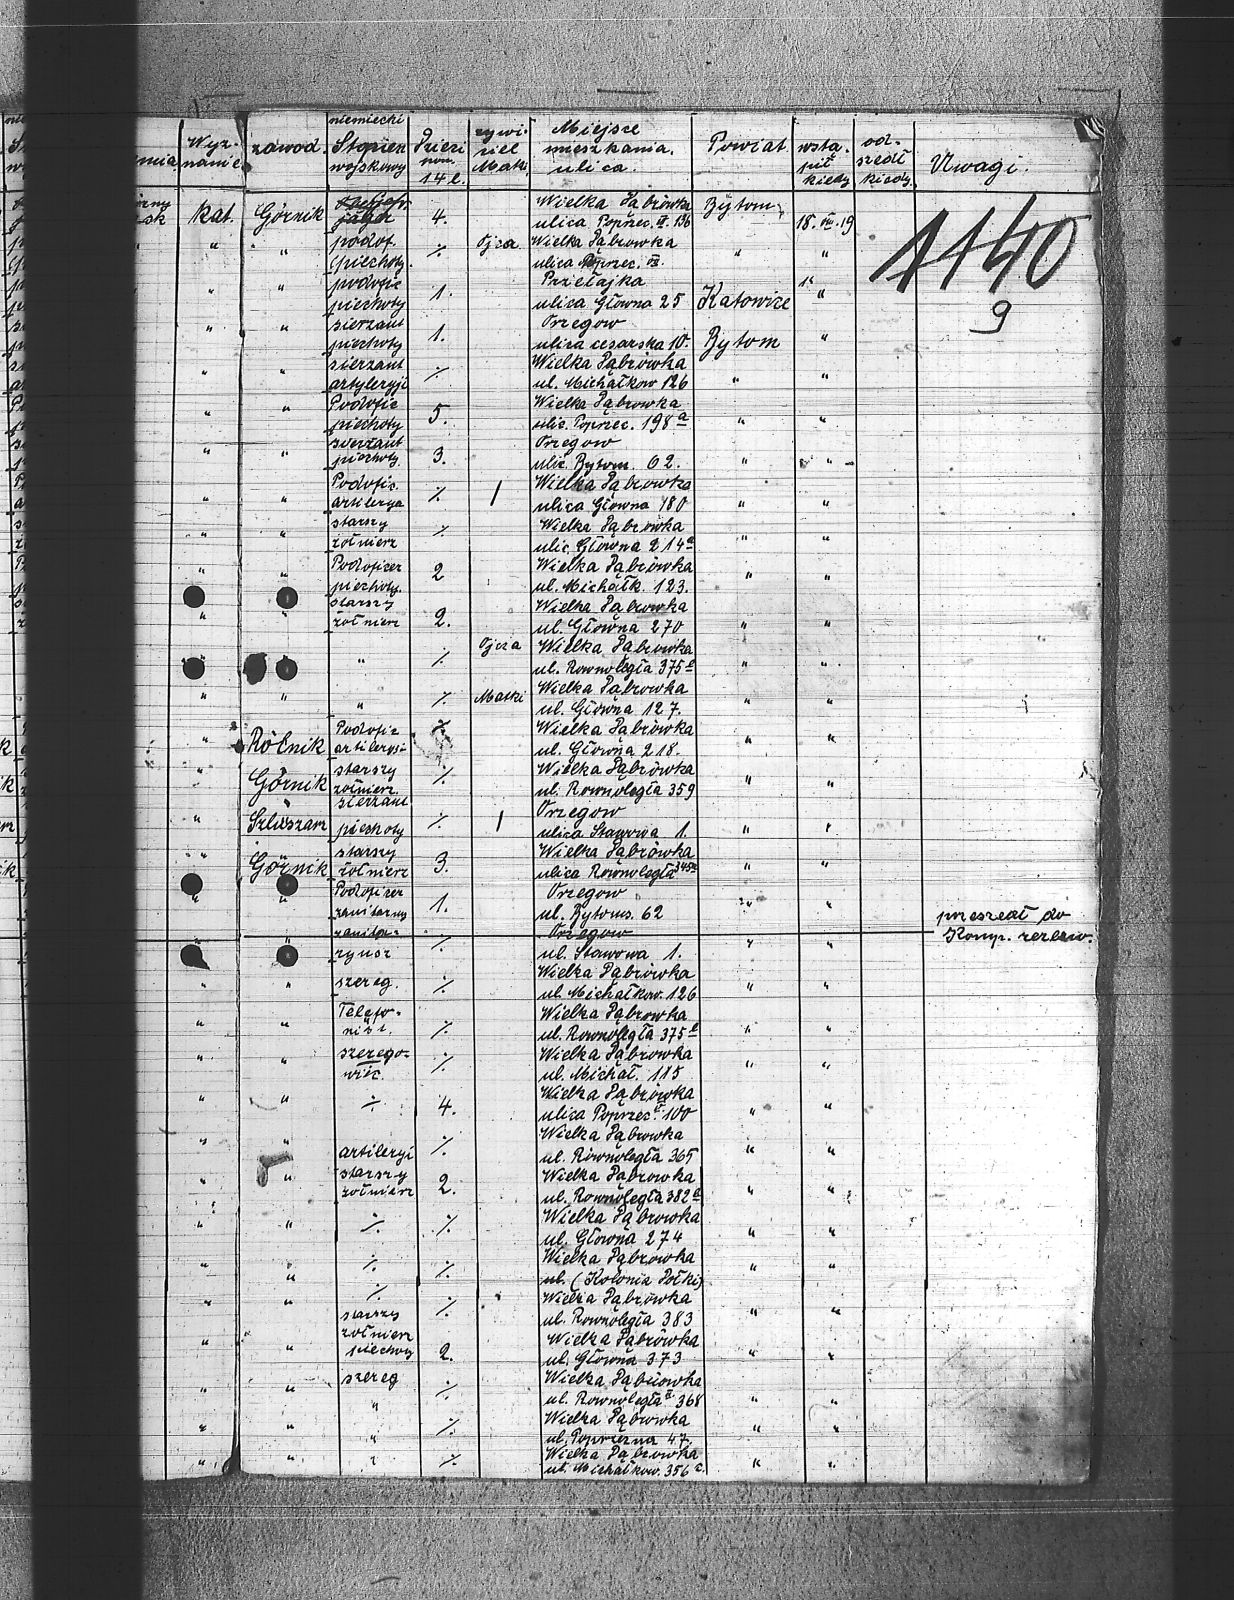 Wyz- zawod. niemiecki Stopień wojskowy Dzieci 14 l. żywiciel Matki Miejsce mieszkania. ulica. Powiat wstąpił kiedy odszedł kiedy Uwagi.
kat. Górnik 4. Wielka Dąbrówka Bytom
ulica Poprzec. 136 18. VIII. 19 1140
" " podof. % Ojca Wielka Dąbrowka
piechoty. ulica Poprzec. " "
" " podofic Przełajka
piechoty 1. ulica Główna 25 Katowice " 9
" " sierzant Orzegow
piechoty 1. ulica cesarska 10. Bytom "
" " sierzant Wielka Dąbrówka
artyleryji % ul. Michałkow 126 " "
" " Podofic Wielka Dąbrowka
piechoty 5. ulic. Poprzec. 198a " "
" " sierżant Orzegow
piechoty 3. ulic. Bytom. 62. " "
" " Podofic. Wielka Dąbrowka
artilerya % / ulica Głowna 180 " "
" " starszy Wielka Dąbrówka
żołnierz % ulic. Główna 214a " "
" " Podoficer 2 Wielka Dąbrówka
piechoty. ul. Michałk. 123. " "
" starszy Wielka Dąbrowka
żołnierz 2. ul. Głowna 270 " "
" % Ojca Wielka Dąbrowka
ul. Rownoległa 375 " "
" " " % Matki Wielka Dąbrowka
ul. Głowna 127. " "
" Rólnik Podofi- % Wielka Dąbrówka
artilerys- ul. Głowna 218. " "
" Górnik starszy % Wielka Dąbrówka
żołnierz ul. Rownoległa 359 " "
" sierżant Orzegow
piechoty % / ulica Stawowa 1. " "
" Górnik starszy Wielka Dąbrówka
żołnierz 3. ulica Rownoległa 345a " "
" " Podoficer Orzegow
sanitarny 1. ul. Bytoms. 62 " " przeszedł do
" " sanita- % Orzegow Komp. rezerw.
ul. Stawowa 1. " "
" " szereg. % Wielka Dąbrowka
ul. Michałkow. 126 " "
" " Telefo- Wielka Dąbrowka
nist. % ul. Rownoległa 375 " "
" " szerego- % Wielka Dąbrowka
wiec. ul. Michał. 115 " "
" " % 4. Wielka Dąbrówka
ulica Poprzec. 100 " "
" " % Wielka Dąbrowka
artileryi ul. Równoległa 365 " "
" starszy Wielka Dąbrowka
żołnierz 2. ul. Rownoległa 382a " "
" " % % Wielka Dąbrowka
ul. Głowna 274 " "
" " % % Wielka Dąbrówka
ul. (Kolonia Połki) " "
" " % % Wielka Dąbrówka
starszy ul. Rownoległa 383 " "
" " żołnierz Wielka Dąbrówka
piechoty 2. ul. Główna 373 " "
" " szereg % Wielka Dąbrówka
ul. Rownoległa 368 " "
" " " % Wielka Dąbrowka
ul. Poprzeczna 47. " "
" " " % Wielka Dąbrowka
ul. Michałkow. 356 " "